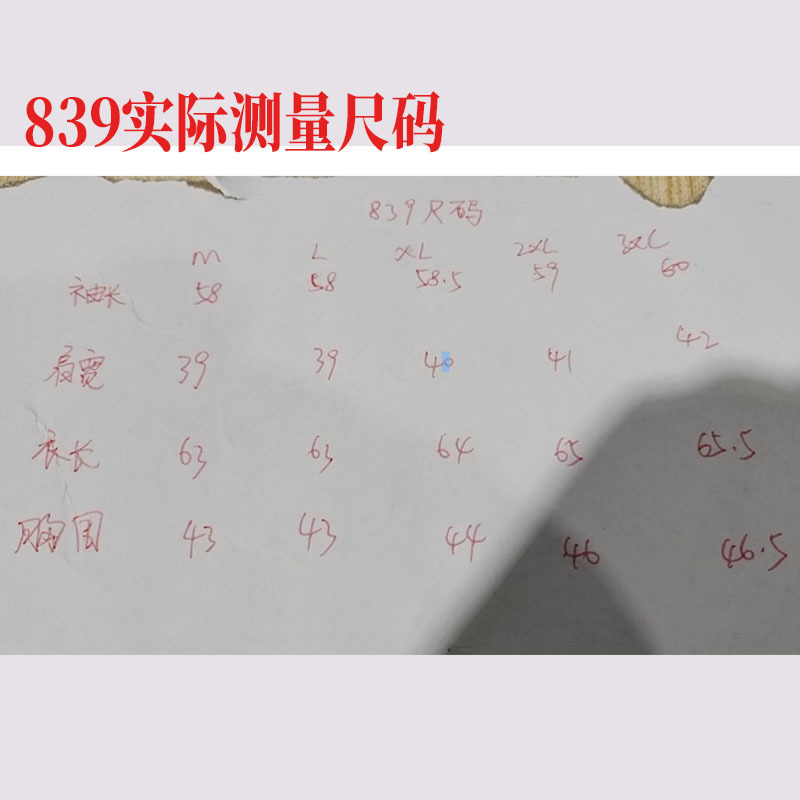 839实际测量尺码
839尺码
M L XL 2XL 3XL
袖长 58 58 58.5 59 60
肩宽 39 39 40 41 42
衣长 63 63 64 65 65.5
胸围 43 43 44 46 46.5